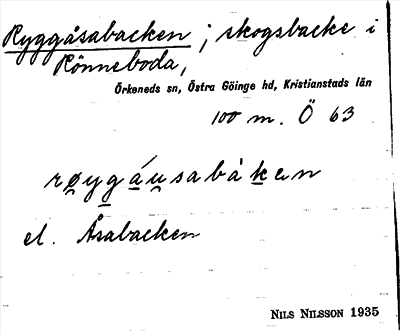 Ryggåsabacken; skogsbacke i
Rönneboda,
Örkeneds sn, Östra Göinge hd, Kristianstads län
100 m. Ö 63
røygáu̯sabàken
el. Åsabacken
NILS NILSSON 1935